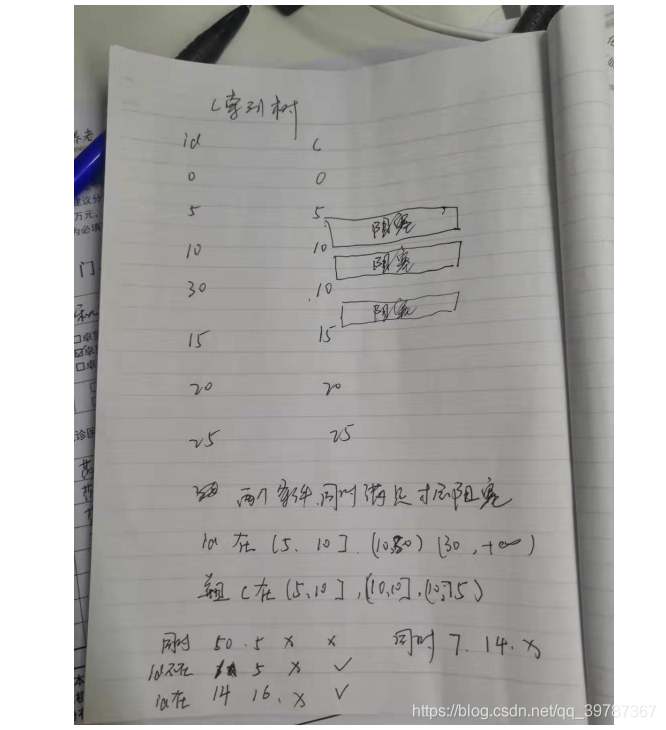 C索引树
id C
0 0
5 5 阻塞
10 10 阻塞
30 10 阻塞
15 15
20 20
25 25
两个条件同时满足才会阻塞
id 在 (5、10]、(10,30) (30,+∞)
且 C在 (5、10],(10,10].(10,15)
同时 50.5 x x 同时 7.14.x
id不在 5 x ✓
id在 14 16.x ✓
https://blog.csdn.net/qq_39787367